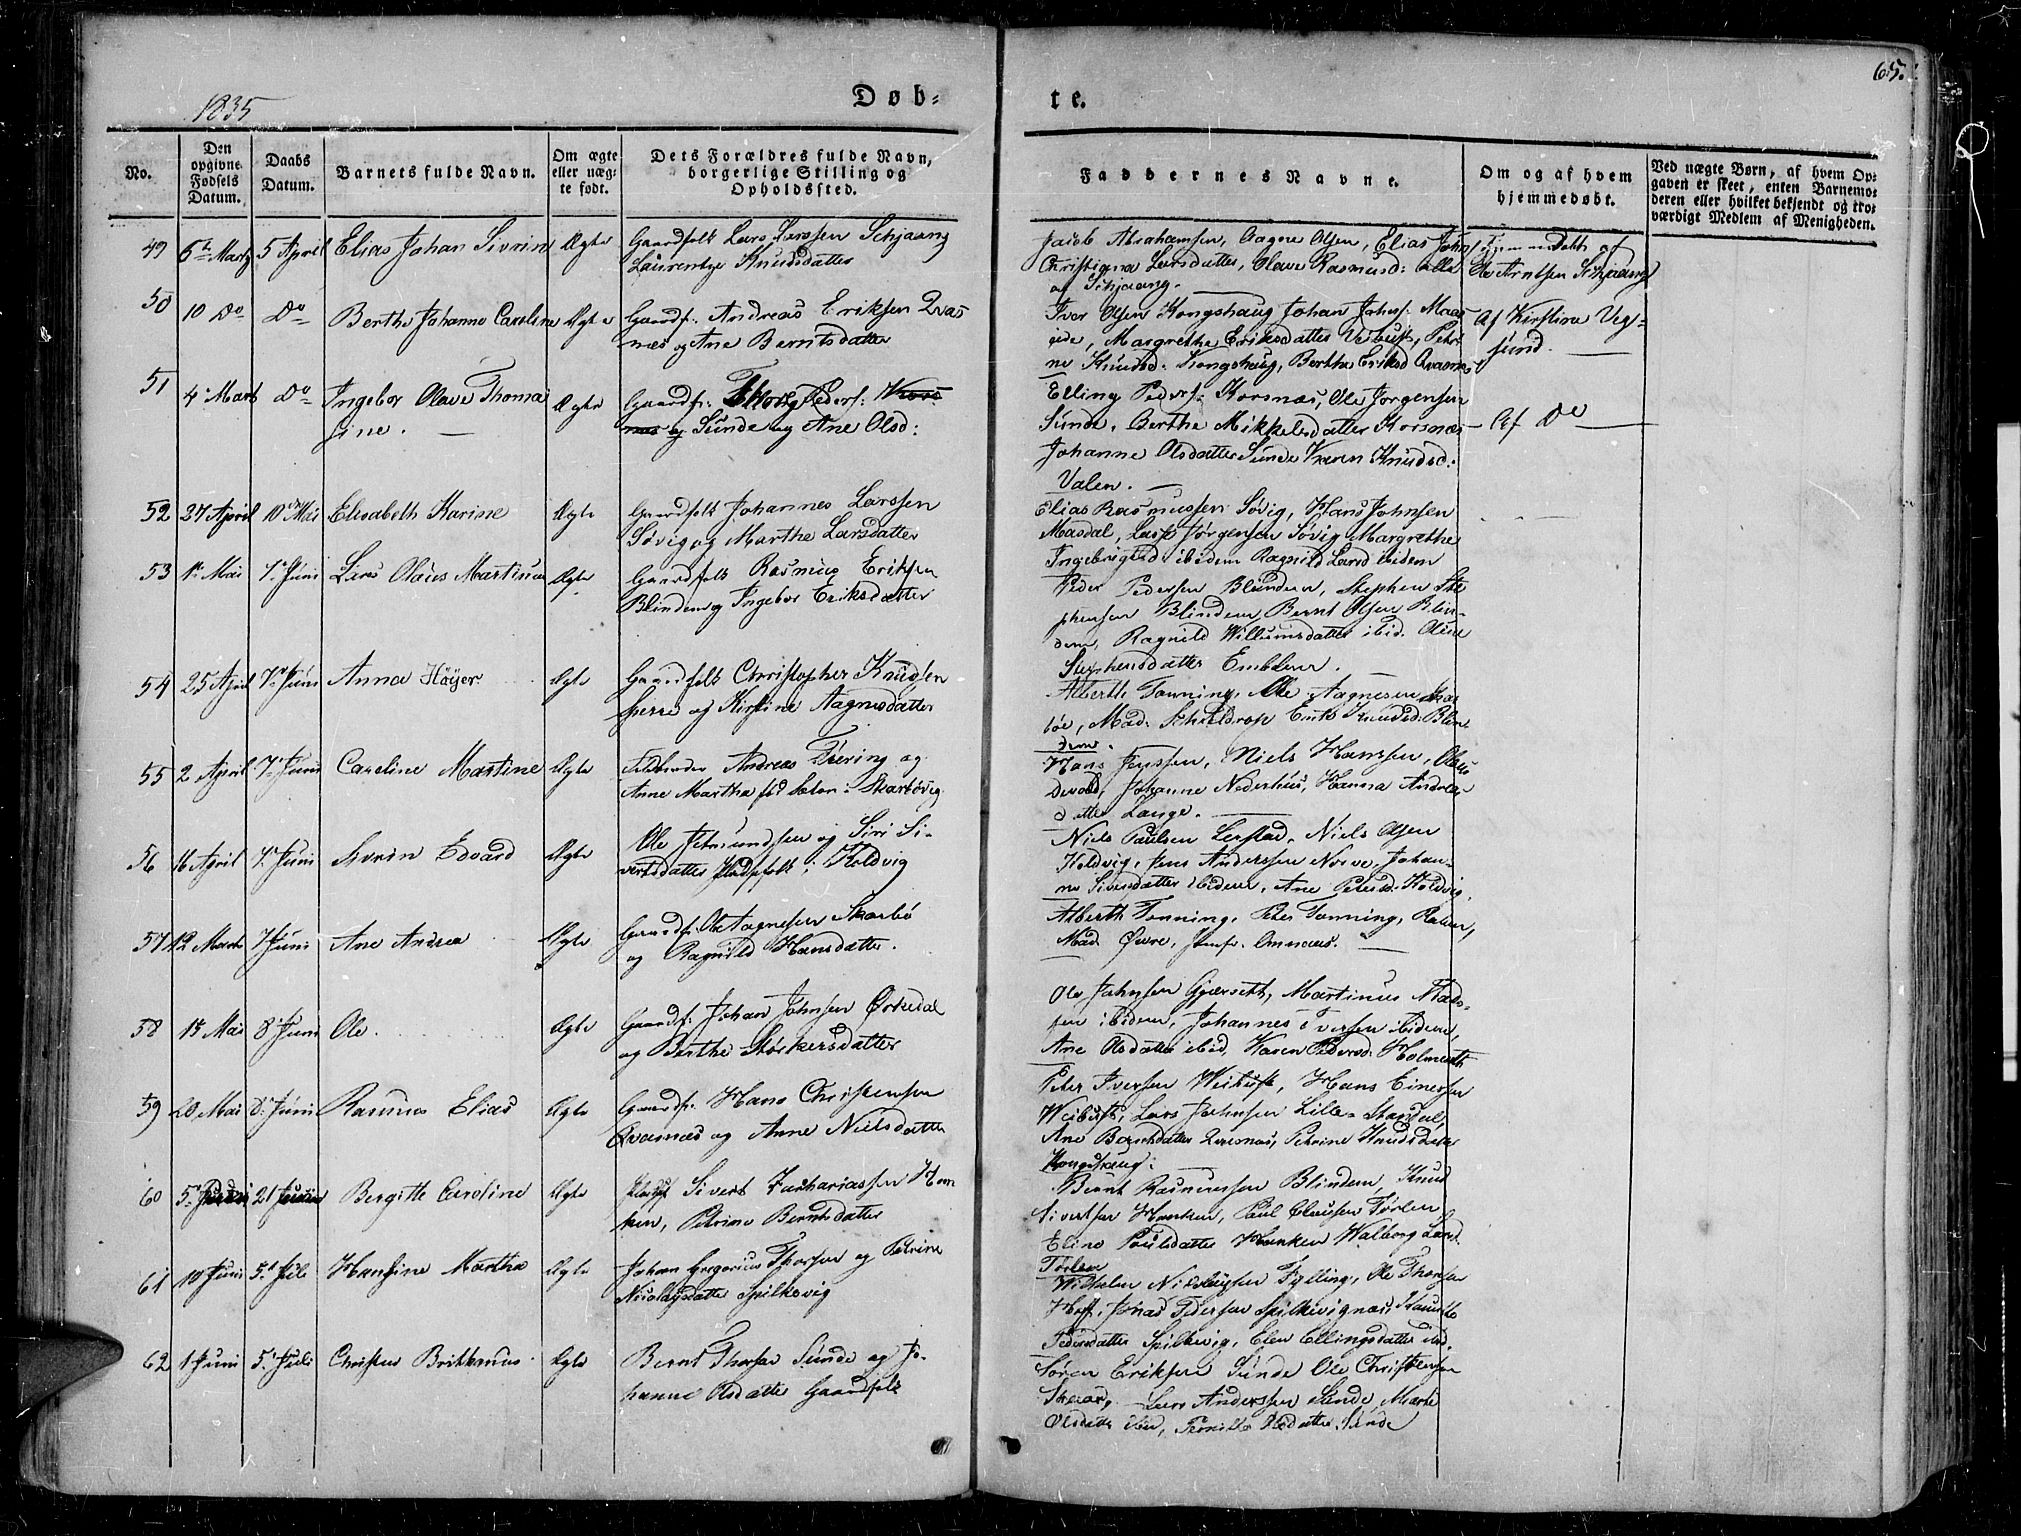 65.
1835
Døb=
te.
No.
Den opgivne Fødsels Datum.
Daabs Datum.
Barnets fulde Navn.
Om ægte eller uæg= te født.
Dets Forældres fulde Navn, borgerlige Stilling og Opholdssted.
Faddernes Navne.
Om og af hvem hjemmedøbt.
Ved uægte Børn, af hvem Op= gaven er skeet, enten Barnemo= deren eller hvilket bekjendt og tro= værdigt Medlem af Menigheden.
49 6te Marts 5 April Elias Johan Sivrin Ægte Gaardfolk Lars Larssen Schjaang
Laurentze Knudsdatter
Jacob Abrahamsen, Aagne Olsen, Elias Joha
Christigna Larsdatter, Olave Rasmusd: alle
af Schjaang.
Ole Arntsen Schjaang
50 10 Do Do Berthe Johanne Caroline Ægte Gaardf: Andreas Eriksen Qvas
næs og Ane Berntsdatter
Iver Olsen Kongshaug Johan Johns: Maas
eide, Margrethe Eriksdatter Vebust, Petri
ne Knudsd: Kongshaug, Berthe Eriksd Qvasnæs
Af Kirstine Veg=
sund.
51 4 Mart Do Ingebor Olave Thoma
sine.
Ægte Gaardf: Thore Peders: Kors
næs og Sunde og Ane Olsd:
Elling Peders: Korsnæs, Ole Jørgensen
Sunde, Berthe Mikkelsdatter Korsnæs
Johanne Olsdatter Sunde Karen Knudsd:
Valen.
Af Do
52 27 April 10de Mai Elisabeth Karine Ægte Gaardfolk Johannes Larssen
Søvig og Marthe Larsdatter
Elias Rasmussen Søvig, Hans Johnsen
Masdal, Lasse Jørgensen Søvig Margrethe
Ingebrigtsd ibidem Ragnild Larsd ibidem
53 1 Mai 7 Juni Lars Olaus Martinus Ægte Gaardfolk Rasmus Eriksen
Blindem og Ingebor Eriksdatter
Peder Pedersen Blindem, Stephen Ste
phensen Blindem Bernt Olsen Blin=
dem, Ragnild Willumsdatter ibid. Oline
Stephensdatter Emblem.
54 25 April 7 Juni Anna Höyer Ægte Gaardfolk Christopher Knudsen
Sperre og Kirstine Aagnesdatter
Alberth Tonning, Ole Aagnesen Skar
bøe, Mad: Schieldrop Knudsd: Blin
dem.
55 2 April 7 Juni Caroline Martine Ægte Andreas og
Anne Martha fød Skarbøvig
Hans Jenssen, Niels Hanssen, Olaus
Devold, Johanne Nederhus, Hanna Andreas
datter Lange.
56 16 April 7 Juni Sivrin Edvard Ægte Ole og Siri Si=
vertsdatter Holdvig
Niels Paulsen Lerstad, Niels Olsen
Holdvig, Jens Anderssen Nørve, Johan=
ne Siversdatter ibidem, Ane Petersd. Holdvig.
57 12 Marts 7 Juni Ane Andrea Ægte Gaardf: Ole Aagnesen Skarbø
og Ragnild Hansdatter.
Alberth Tonning, Peter Tonning,
Mad Øwre, Jomfr.
58 15 Mai 8 Juni Ole. Ægte Gaardf: Johan Johnsen Ørkedal
og Berthe Størkersdatter
Ole Johnsen Gjærsett, Martinus Mads=
sen ibidem, Johannes Iversen ibidem,
Ane Olsdatter ibid, Karen Pedersd: Holmeseth
59 20 Mai 8 Juni Rasmus Elias Ægte Gaardf: Hans Christensen
Qvasnæs og Anne Nielsdatter
Peter Iversen Weibust, Hans Einersen
Weibust, Lars Johnsen Lille=Standal,
Ane Berntsdatter Qvasnæs, Petrine Knudsdatter
Kongshaug.
60 5 Juni 21 Juni Bergitte Caroline Ægte Sivert Zachariassen Hon
ken, Petrine Berntsdatter
Bernt Rasmussen Blindem, Knud
Sivertsen Honken, Paul Clausen Tørlen
Eline Paulsdatter Honken Walborg Larsd.
Tørlen
61 10 Juni 5 Juli Hansine Martha Ægte Johan Gregorius Thorsen og Petrine
Nicolaysdatter Spilkevig
Wilhelm Nicolaysen Fylling, Ole Thorsen
Hoff, Jonas Pedersen Spilkevignæs,
Pedersdatter Spilkevig, Elen Ellingsdatter ibid.
62 1 Juni 5 Juli Christen Brithanus Ægte Bernt Thorsen Sunde og Jo=
hanne Olsdatter Gaardfolk
Søren Eriksen Sunde Ole Christensen
Lars Anderssen Sunde, Marte
Olsdatter Olsdatter Sunde